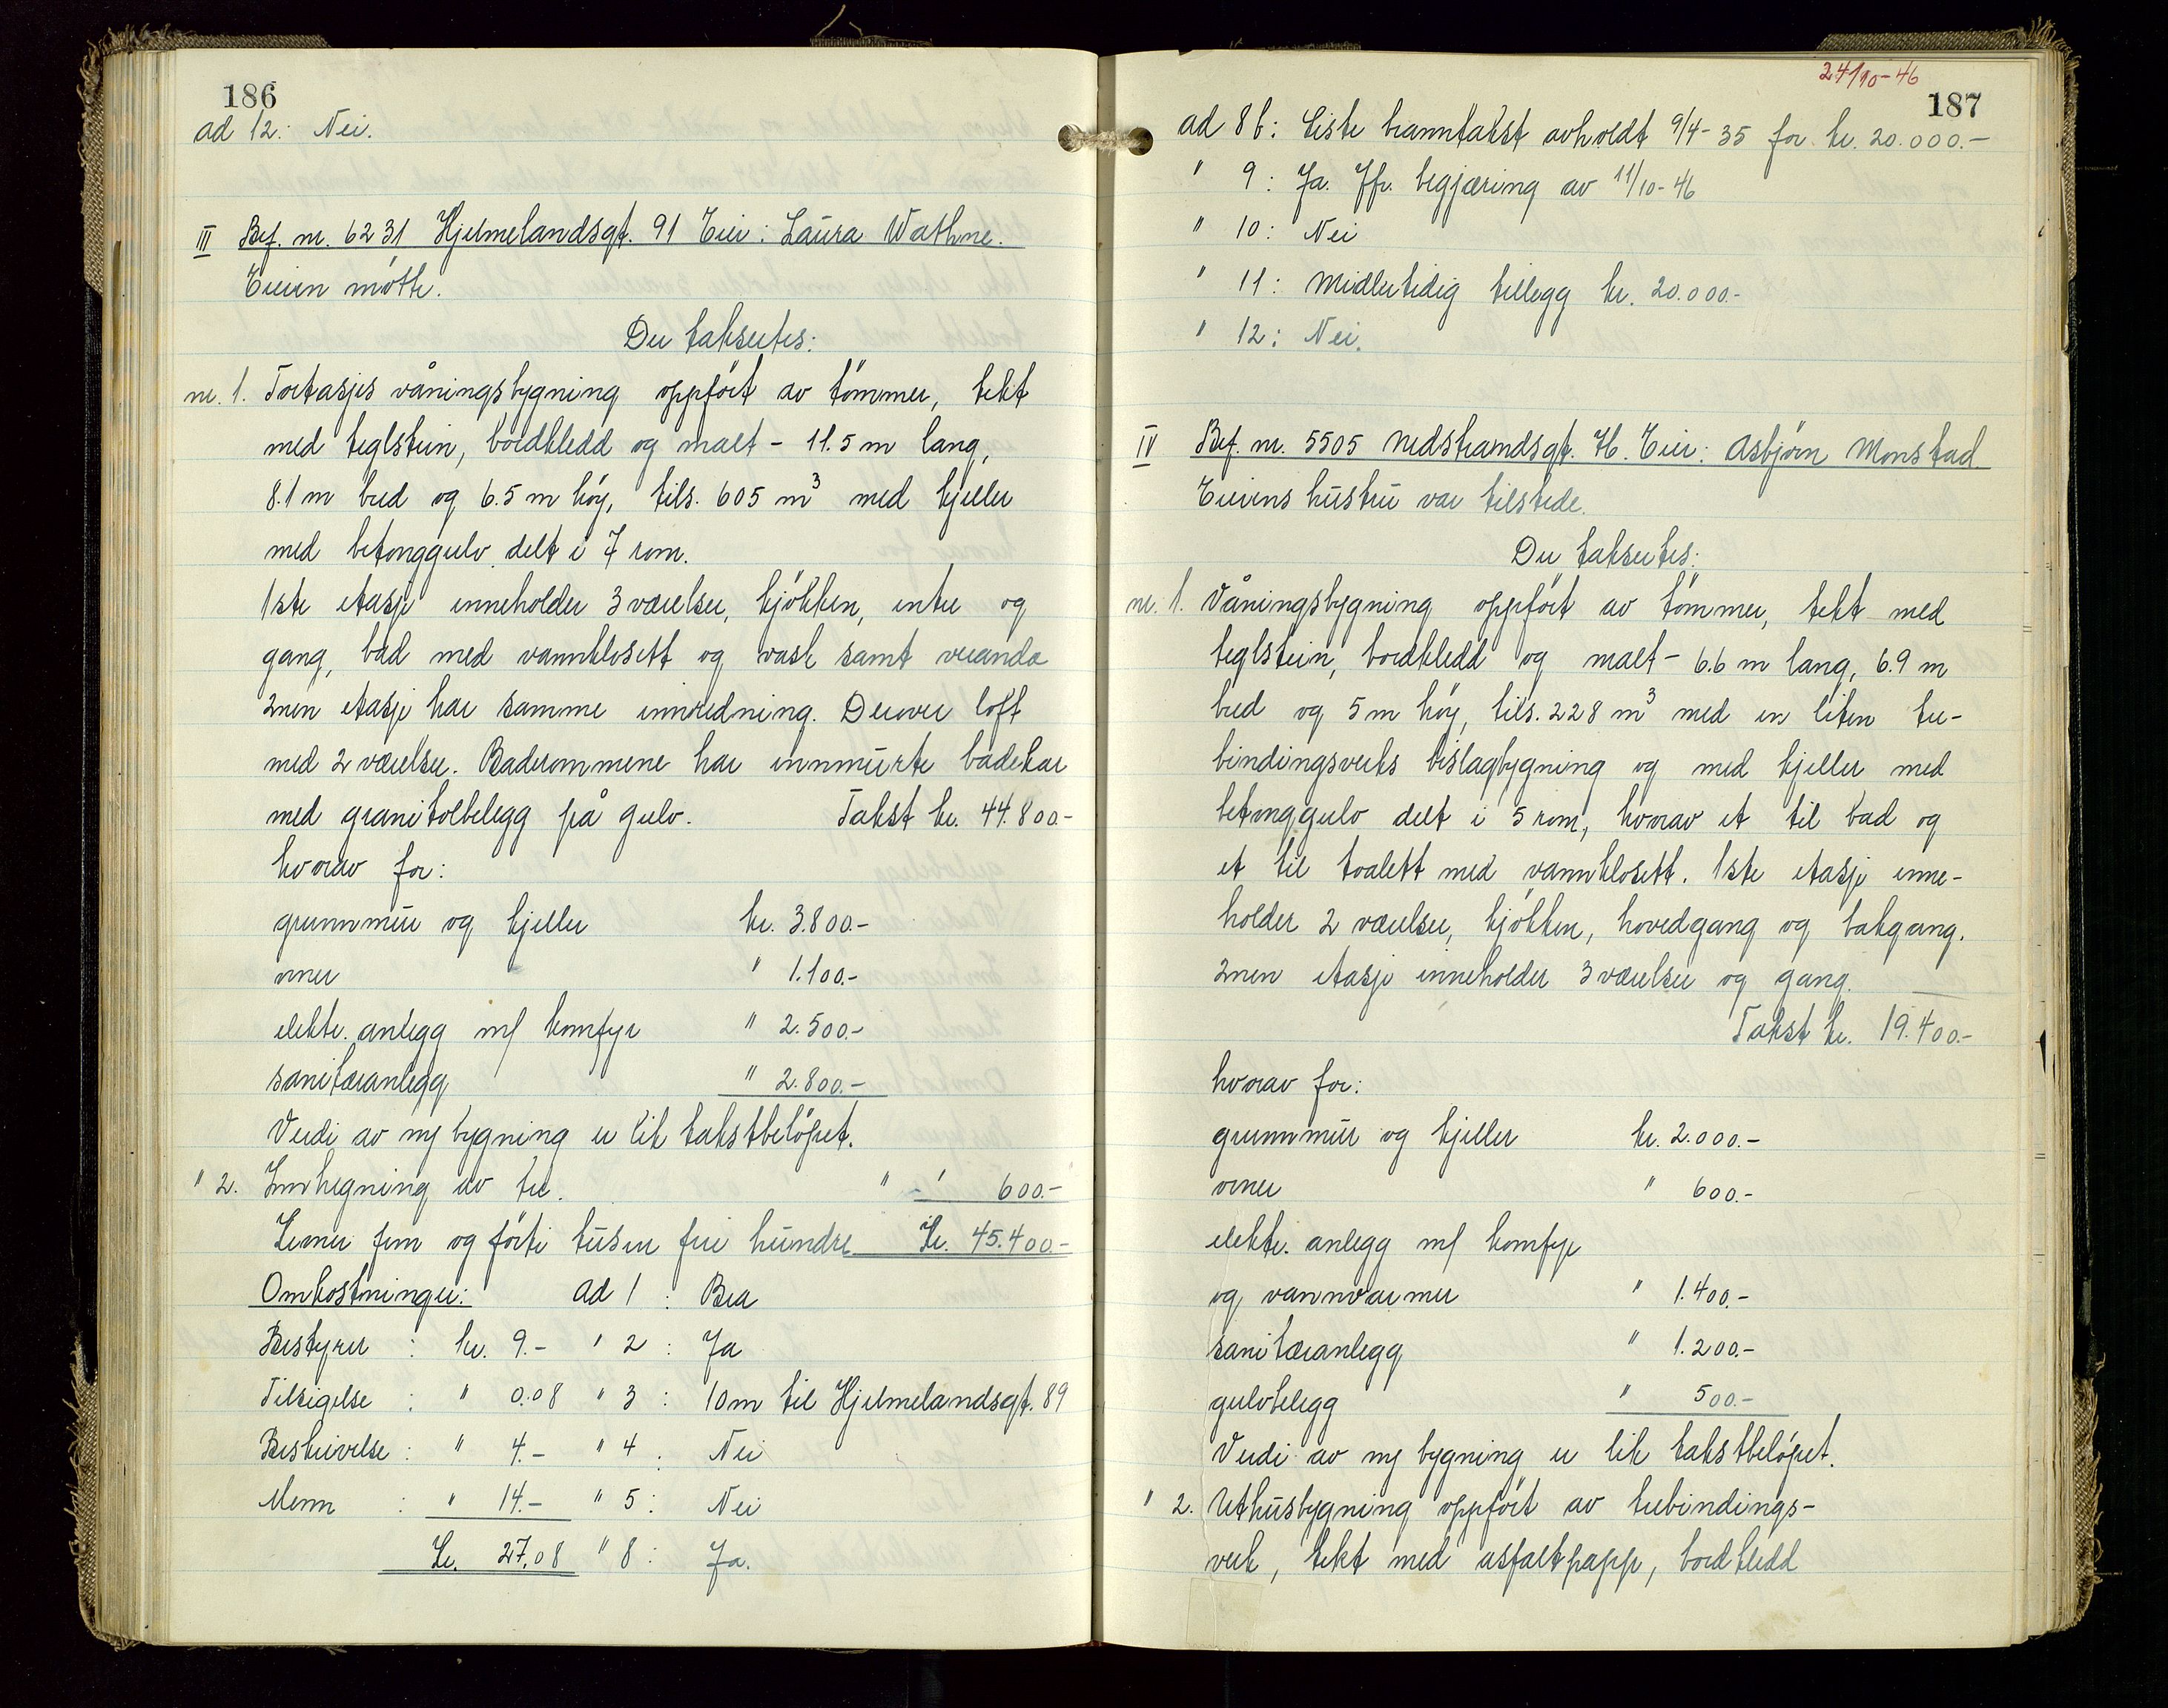 186
ad 12: Nei.
III Bef. nr. 6231 Hjelmelandsgt. 91 Eier: Laura Wathne.
Eieren møtte.
Der takseertes:
nr. 1. Toetasjes våningsbygning oppført av tømmer, tekt
med teglstein, bordkledd og malt - 11.5 m lang,
8.1 m bred og 6.5 m høy, tils. 605 m³ med kjeller
med betonggulv delt i 7 rom.
1ste etasje inneholder 3 værelser, kjøkken, entre og
gang, bad med vannklosett og vask samt veranda
2nen etasje har samme innredning. Derover loft
med 2 værelser. Baderommene har innmurte badekar
med granitolbelegg på gulv. Takst kr. 44.800.-
hvorav for:
grunnmur og kjeller kr. 3.800.-
ovner " 1.100.-
elektr. anlegg m/ komfyr " 2.500.-
sanitæranlegg " 2.800.-
Verdi av ny bygning er lik takstbeløpet.
" 2. Innhegning av tre. " 600.-
Kroner fem og førti tusen fire hundre Kr. 45.400.-
Omkostninger: ad 1 : Bra
Bestyrer : kr. 9.- " 2 : Ja
Tilsigelse : " 0.08 " 3 : 10 m til Hjelmelandsgt. 89
Beskrivelse : " 4.- " 4 : Nei
Menn : " 14.- " 5 : Nei
Kr. 27.08 " 8 : Ja.
24/10-46
187
ad 8 b: Siste branntakst avholdt 9/4-35 for kr. 20.000.-
" 9: Ja. Jfr. begjæring av 11/10-46
" 10: Nei
" 11: Midlertidig tillegg kr. 20.000.-
" 12: Nei.
IV Bef. nr. 5505 Nedstrandsgt. 46. Eier: Asbjørn Monstad
Eierens hustru var tilstede.
Der taksertes:
nr. 1. Våningsbygning oppført av tømmer, tekt med
teglstein, bordkledd og malt - 6.6 m lang, 6.9 m
bred og 5 m høy, tils. 228 m³ med en liten tre-
bindingsverks bislagbygning og med kjeller med
betonggulv delt i 5 rom, hvorav et til bad og
et til toalett med vannklosett. 1ste etasje inne-
holder 2 værelser, kjøkken, hovedgang og bakgang.
2nen etasje inneholder 3 værelser og gang.
Takst kr. 19.400.-
hvorav for:
grunnmur og kjeller kr. 2.000.-
ovner " 600.-
elektr. anlegg m/ komfyr
og vannvarmer " 1.400.-
sanitæranlegg " 1.200.-
gulvbelegg " 500.-
Verdi av ny bygning er lik takstbeløpet.
" 2. Uthusbygning oppført av trebindings-
verk, tekt med asfaltpapp, bordkledd